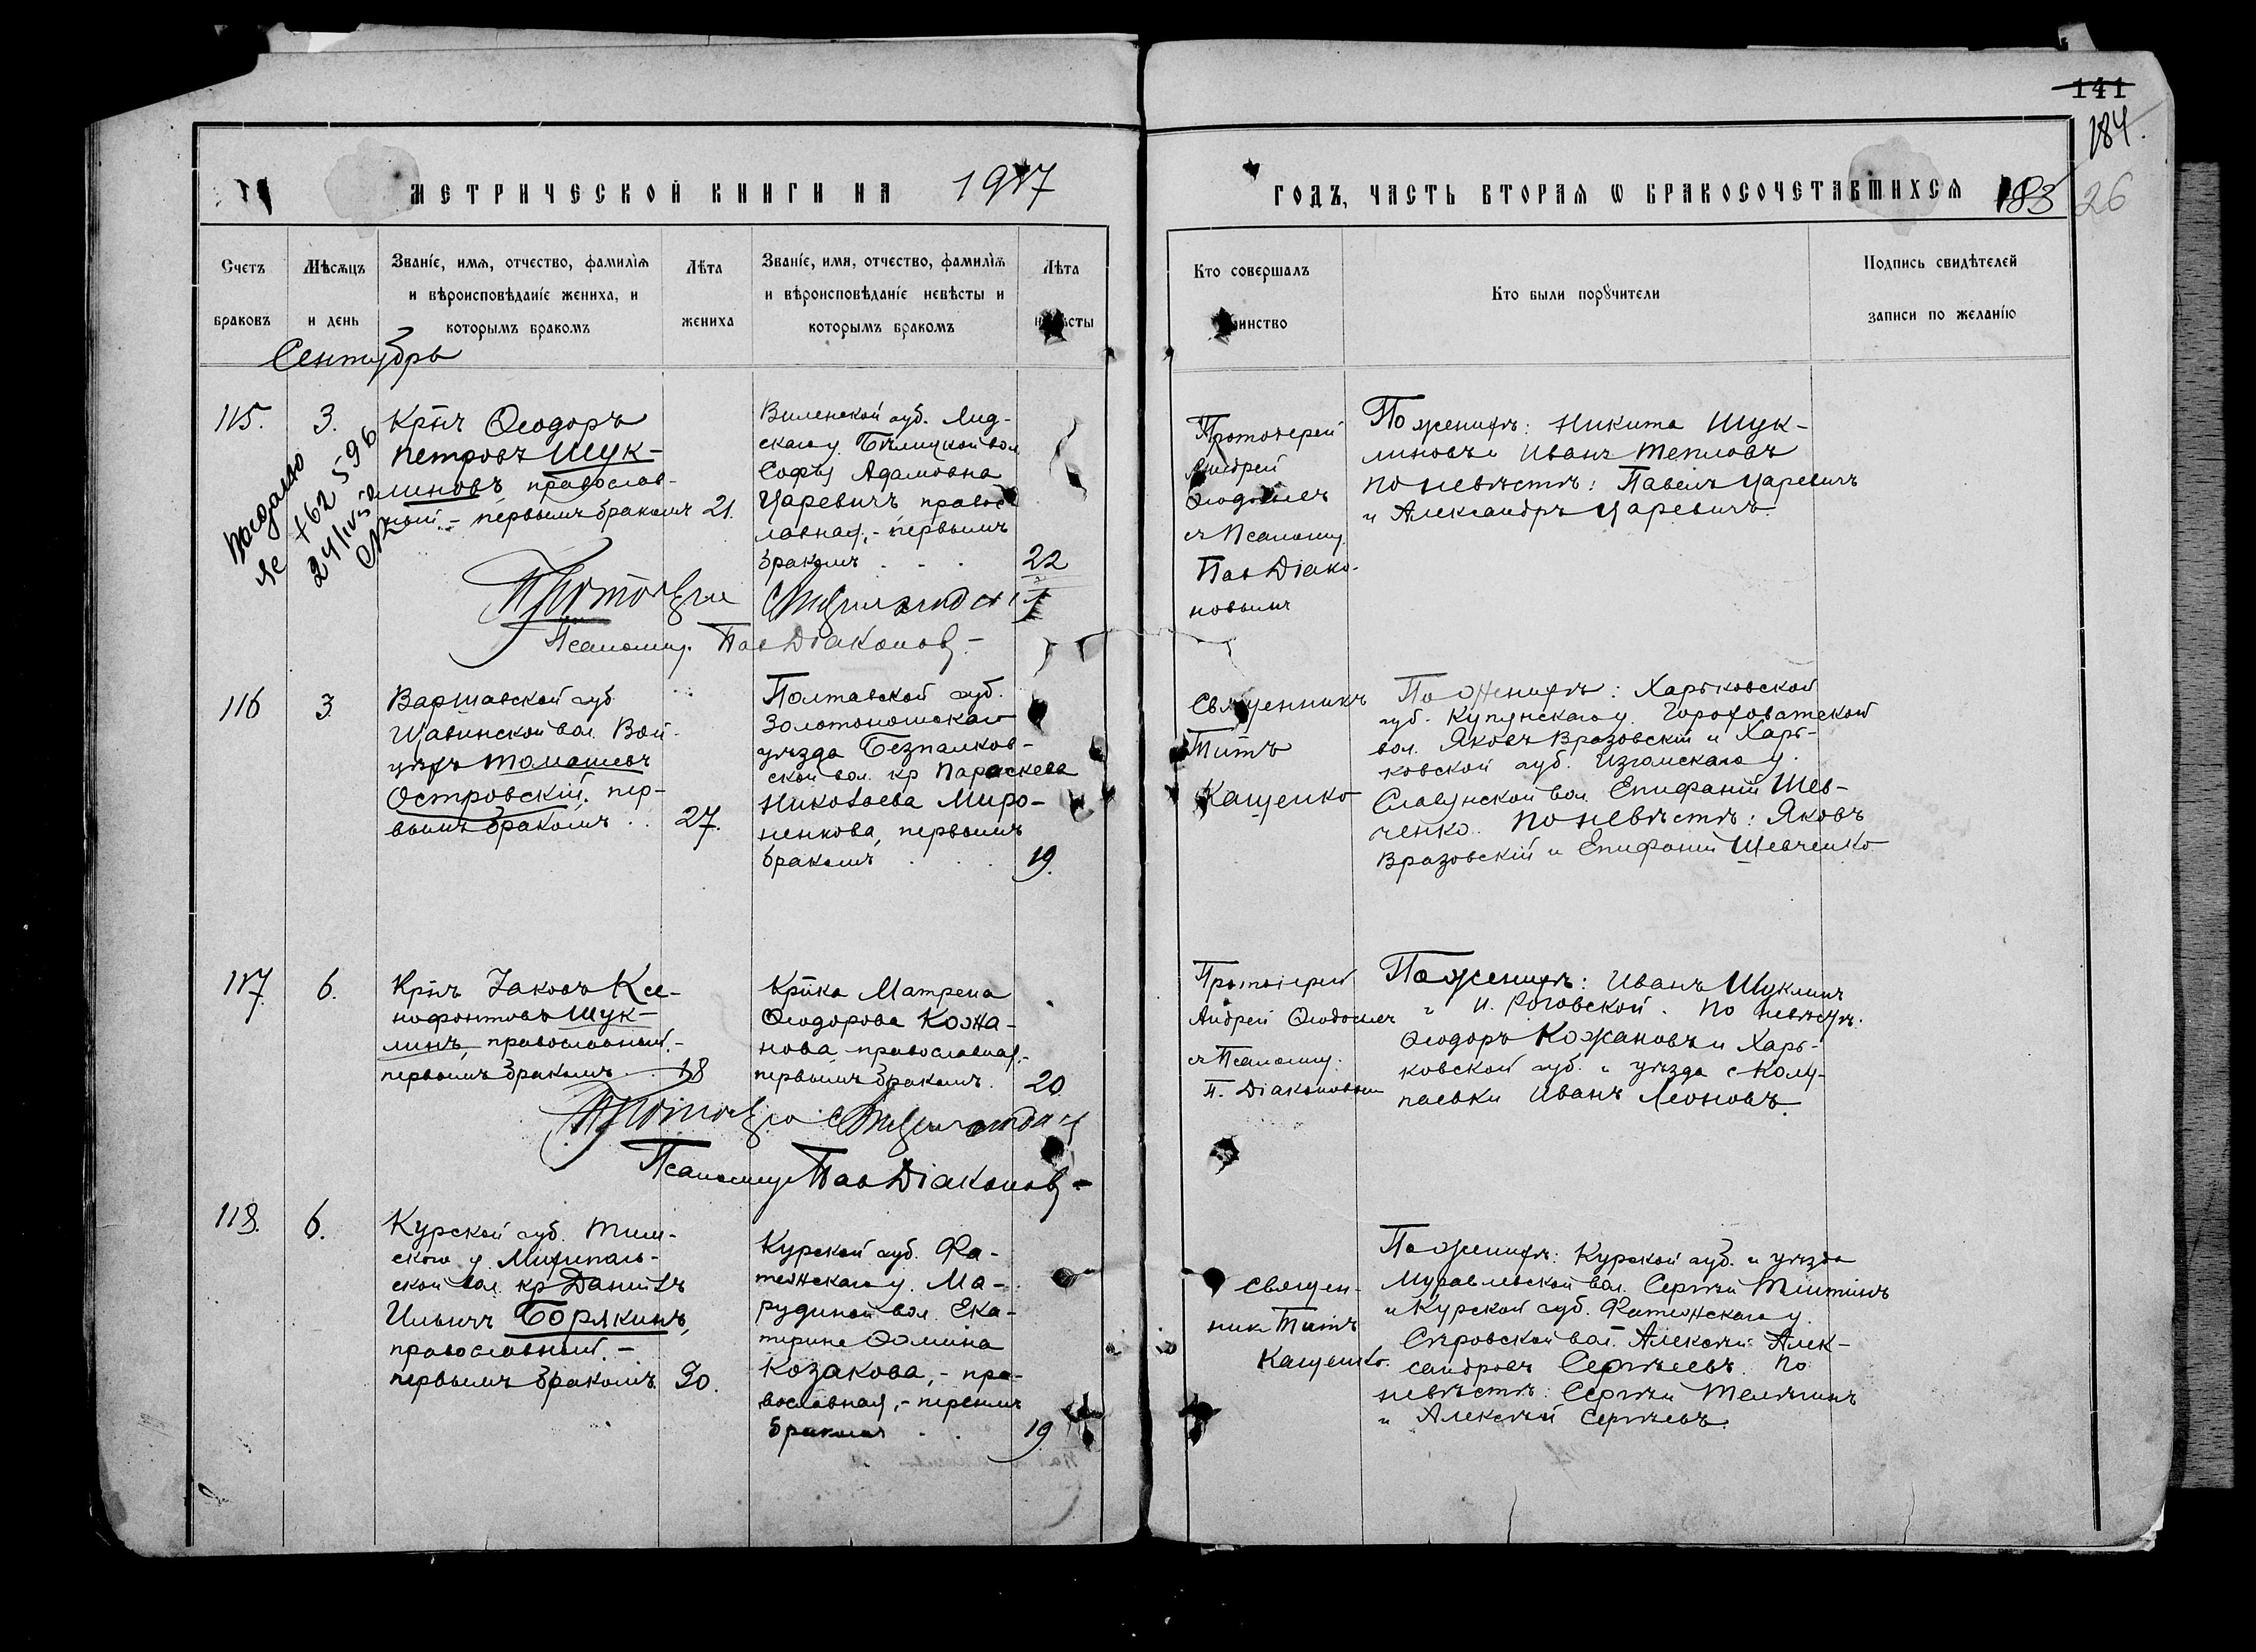 141
184.
МЕТРИЧЕСКОЙ КНИГИ НА 1917
ГОДЪ, ЧАСТЬ ВТОРАЯ Ѡ БРАКОСОЧЕТАВШИХСЯ 183 26
Счетъ браковъ
Мѣсяцъ и день
Званіе, имя, отчество, фамилія
и вѣроисповѣданіе жениха, и
которымъ бракомъ
Лѣта
жениха
Званіе, имя, отчество, фамилія
и вѣроисповѣданіе невѣсты и
которымъ бракомъ
Лѣта
Кто совершалъ
Кто были порꙋчители
Подпись свидѣтелей
записи по желанію
Сентябрь
115.
3.
Крнъ Ѳеодоръ
Петровъ Шук-
линовъ, православ-
ный. - первымъ бракомъ 21.
Виленской губ. Лид-
скаго у. Бѣлицкой вол.
Софія Адамовна
Царевичъ правос
лавная, - первымъ
бракомъ . . . 22
Протоіерей
Андрей
съ Псаломщ.
Пав Діако-
новымъ
По женихѣ: Никита Шук-
линовъ и Иванъ Тепловъ
по невѣстѣ: Павелъ Царевичъ
и Александръ Царевичъ.
Псаломщ. Пав Діаконов -
116
3.
Варшавской губ
Щавинской вол. Вой-
цѣхъ Томашевъ
Островскій, пер-
вымъ бракомъ . . 27.
Полтавской губ.
Золотоношскаго
уѣзда Безпалков-
ской вол. кр Параскева
Николаева Миро-
ненкова, первымъ
бракомъ . . . 19.
Священникъ
Титъ
Кащенко
По женихѣ: Харьковской
губ. Купянскаго у. Гороховатской
вол. Яковъ Вразовскій и Харь-
ковской губ. Изюмскаго у.
Славянской вол. Епифаній Шев-
ченко. По невѣстѣ: Яковъ
Вразовскій и Епифаній Шевченко
117.
6.
Крнъ Іаковъ Ксе-
нофонтовъ Шук-
линъ, православный. -
первымъ бракомъ . . 18
Крнка Матрена
Ѳеодорова Кожа-
нова, православная, -
первымъ бракомъ. 20.
Протоіерей
Андрей
съ Псаломщ.
П. Діаконовым
По женихѣ: Иванъ Шуклинъ
и И. Роговской. По невѣстѣ:
Ѳеодоръ Кожановъ и Харь-
ковской губ. и уѣзда с Колу-
паевки Иванъ Леоновъ.
Псаломщ Пав Діаконов -
118.
6.
Курской губ. Тим-
скаго у.
ской вол. кр Даніилъ
Ильичъ Борякинъ,
православный. -
первымъ бракомъ. 30.
Курской губ. Фа-
тежскаго у. Ма-
рудиной вол. Ека-
терина Ѳомина
Козакова, - пра-
вославная, - первымъ
бракомъ . . 19
Священ-
никъ Титъ
Кащенко.
По женихѣ: Курской губ. и уѣзда
Муравлевской вол. Сергѣй
и Курской губ. Фатежскаго у.
Сѣровской вол. Алексѣй Алек-
сандровъ Сергѣевъ. По
невѣстѣ: Сергѣй
и Алексѣй Сергѣевъ.